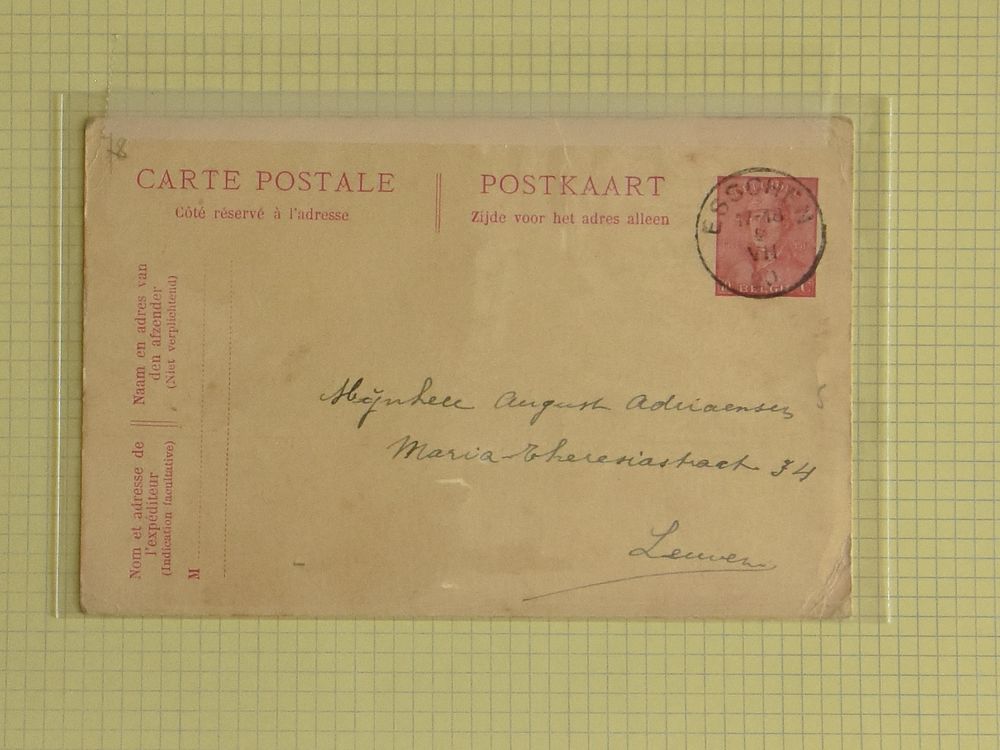 78
CARTE POSTALE
Côté réservé à l'adresse
POSTKAART
Zijde voor het adres alleen
ESSCHEN
17-18
VII
10 BELGI C
Naam en adres van
den afzender
(Niet verplichtend)
Nom et adresse de
l'expéditeur
(Indication facultative)
M
Mijnheer August Adriaensen
Maria-Theresiastraat 34
Leuven